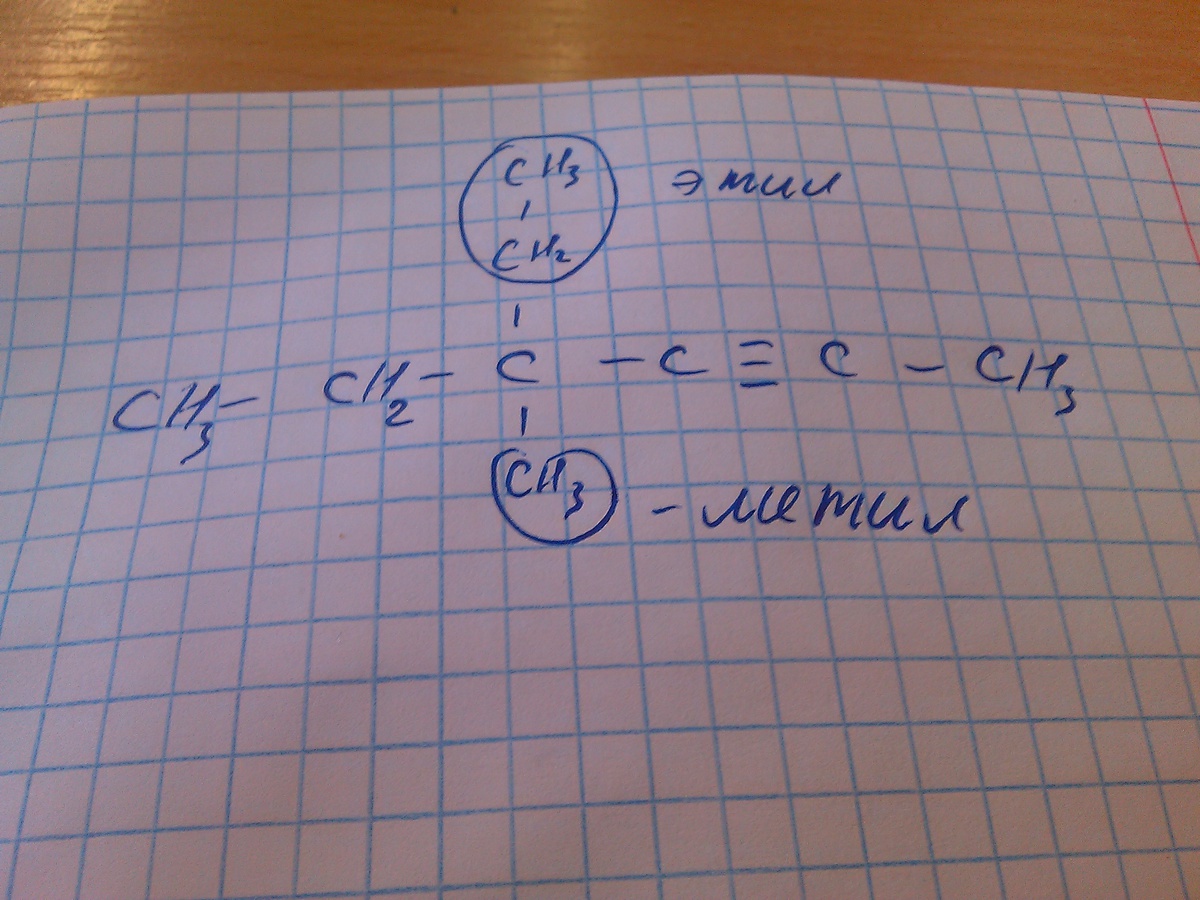 CH3 этил
CH2
CH3 - CH2 - C - C ≡ C - CH3
CH3 - метил